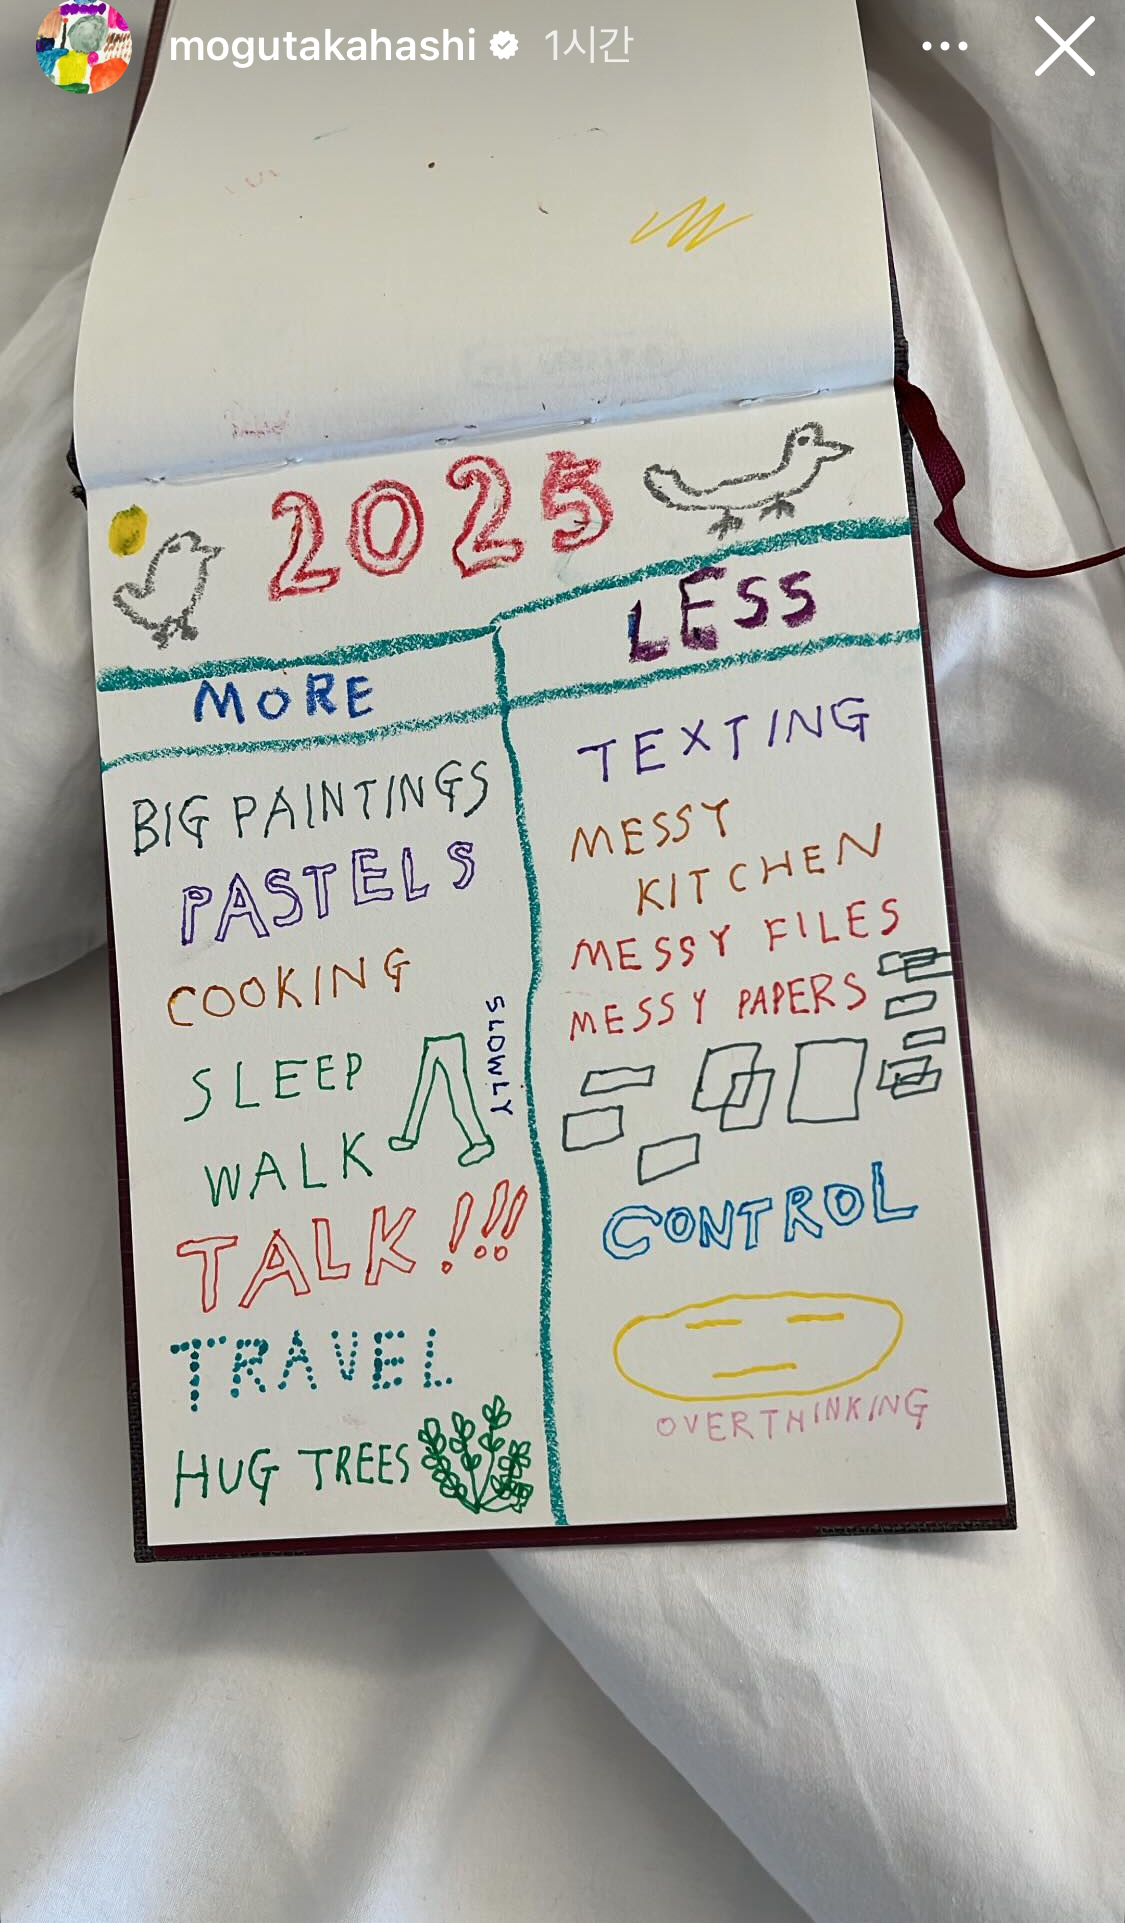 mogutakahashi 1시간
2025
MORE
BIG PAINTINGS
PASTELS
COOKING
SLEEP
WALK
SLOWLY
TALK!!!
TRAVEL
HUG TREES
LESS
TEXTING
MESSY
KITCHEN
MESSY FILES
MESSY PAPERS
CONTROL
OVERTHINKING